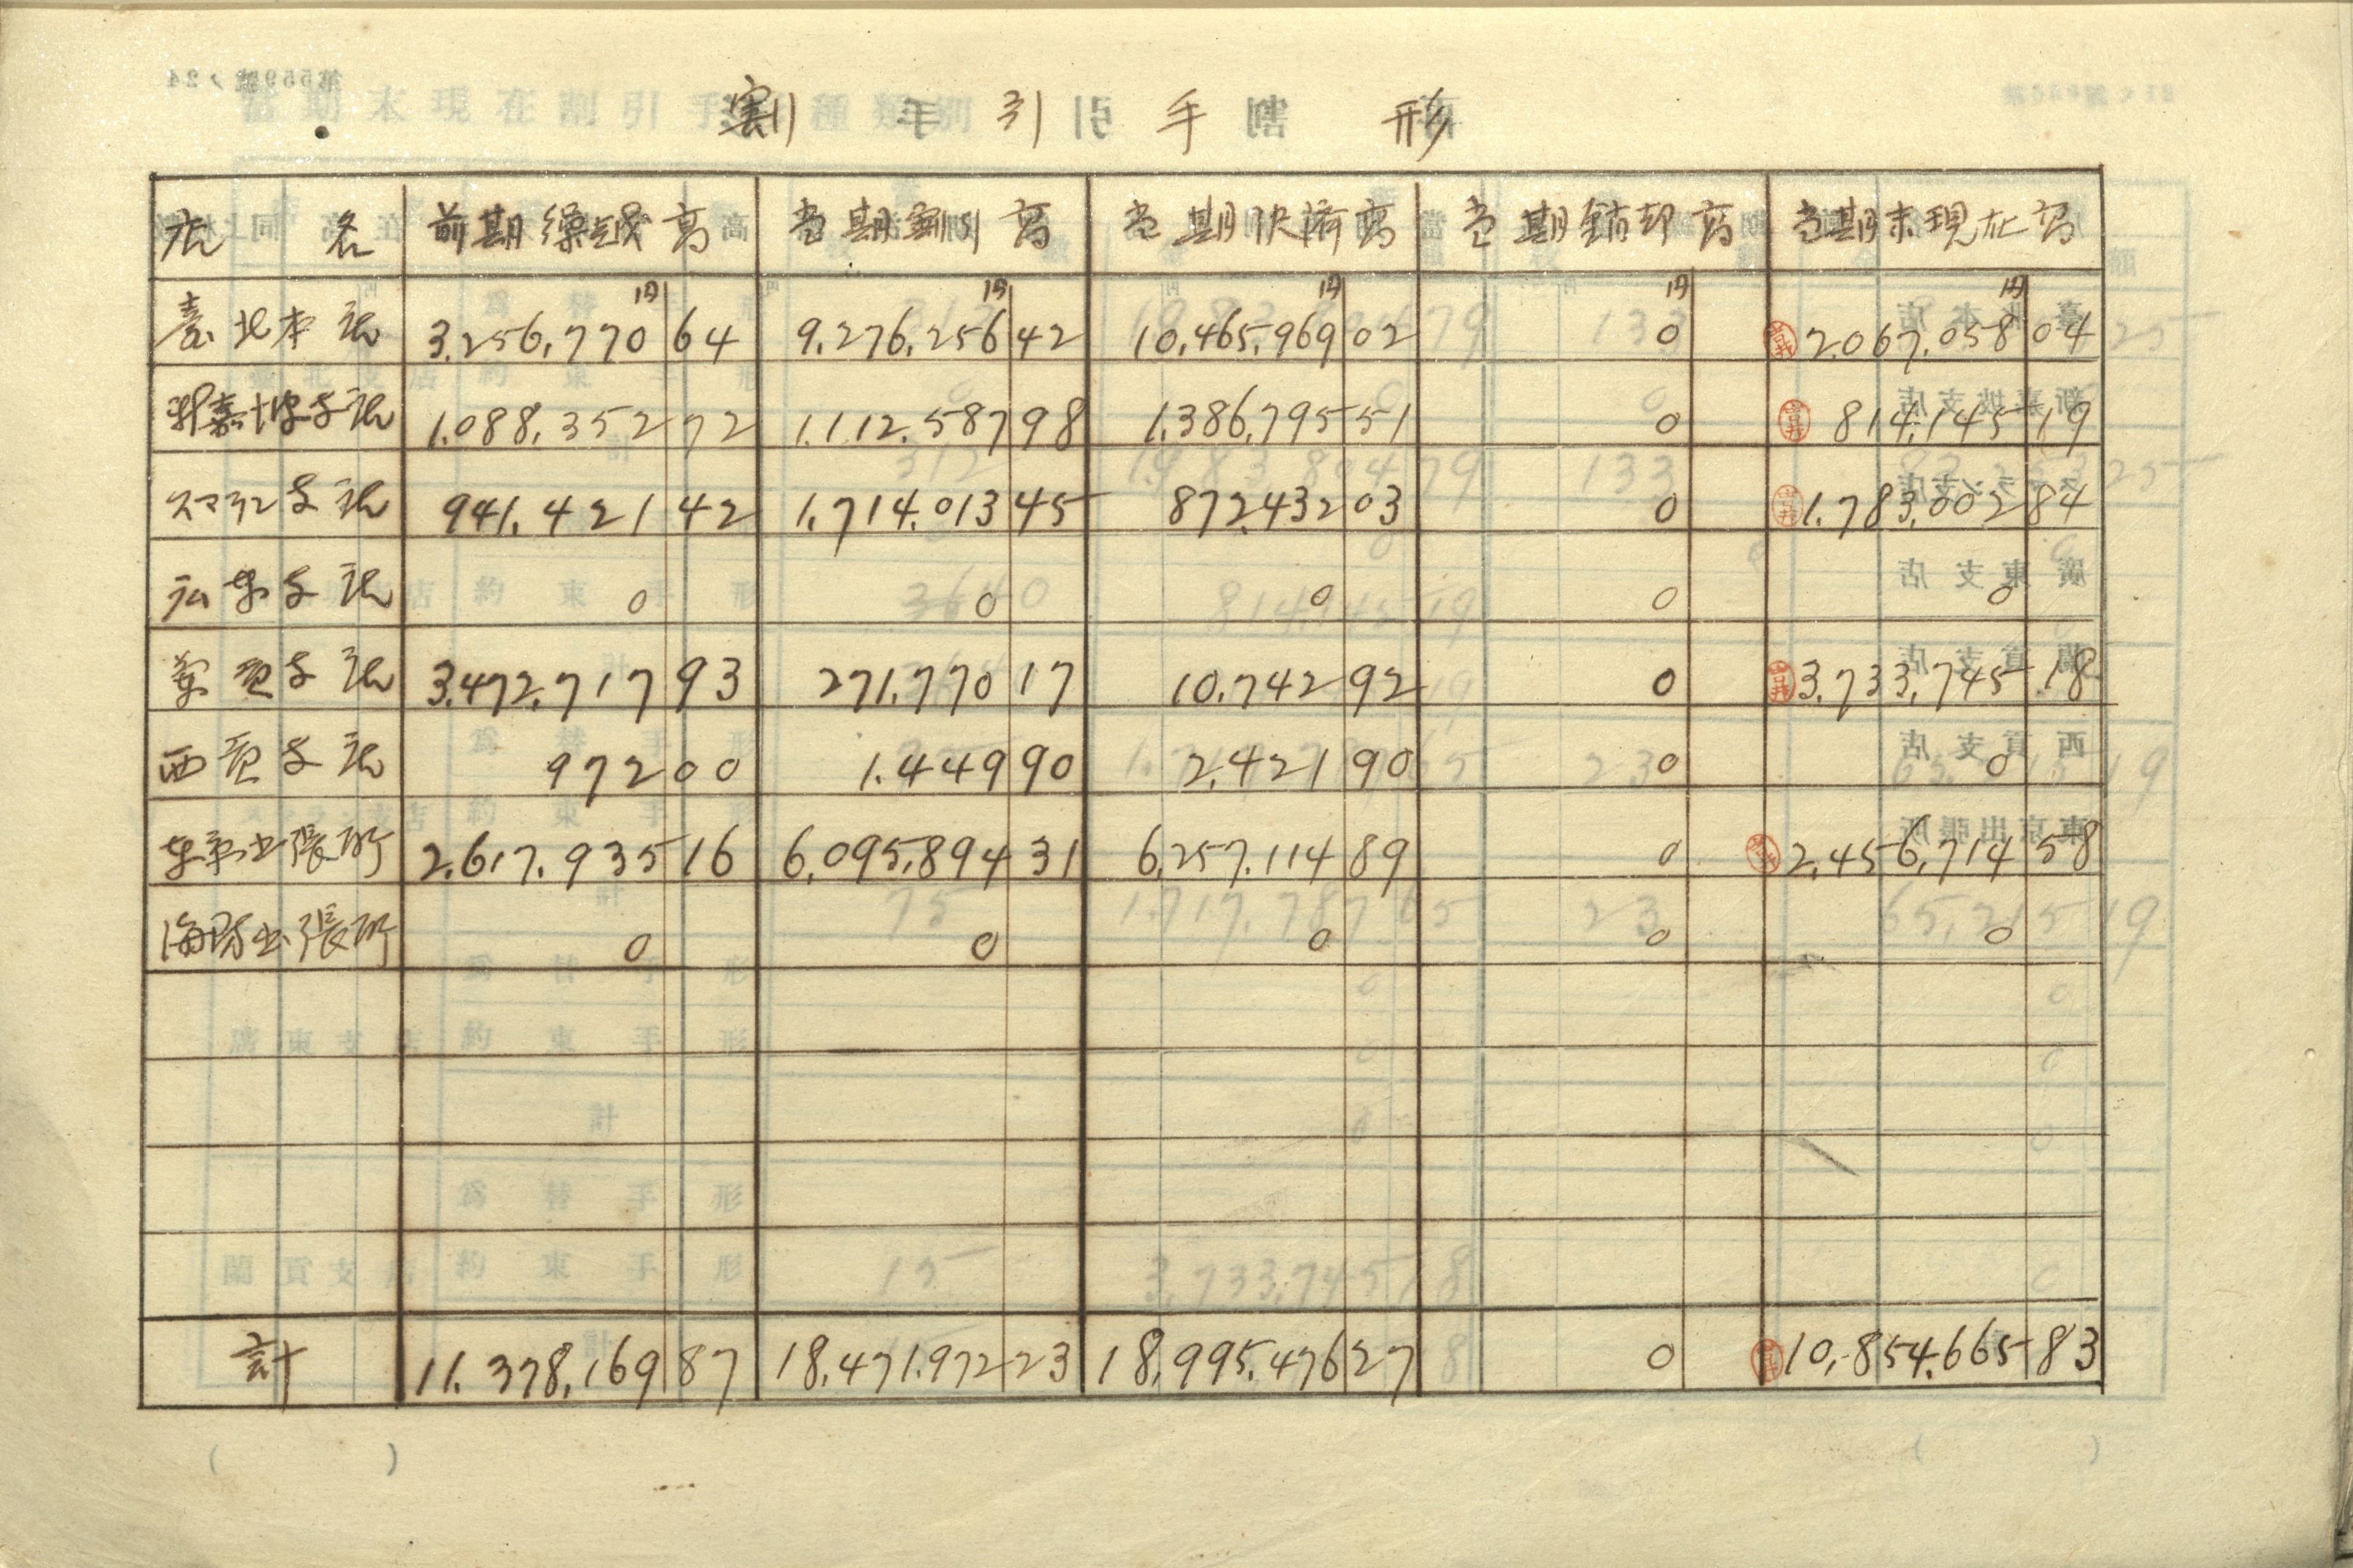 割引手形
店名 前期繰越高 当期割引高 当期決済高 当期銷却高 当期末現在高
円 円 円 円 円
臺北本店 3.256.770 64 9.276.256 42 10.465.969 02 0 2.067.058 04
新嘉坡支店 1.088.352 72 1.112.587 98 1.386.795 51 0 814.145 19
スマラン支店 941.421 42 1.714.013 45 872.432 03 0 1.783.002 84
広東支店 0 0 0 0 0
蘭貢支店 3.472.717 93 271.770 17 10.742 92 0 3.733.745 18
西貢支店 972 00 1.449 90 2.421 90 0 0
東京出張所 2.617.935 16 6.095.894 31 6.257.114 89 0 2.456.714 58
海防出張所 0 0 0 0 0
計 11.378.169 87 18.471.972 23 18.995.476 27 0 10.854.665 83
( )